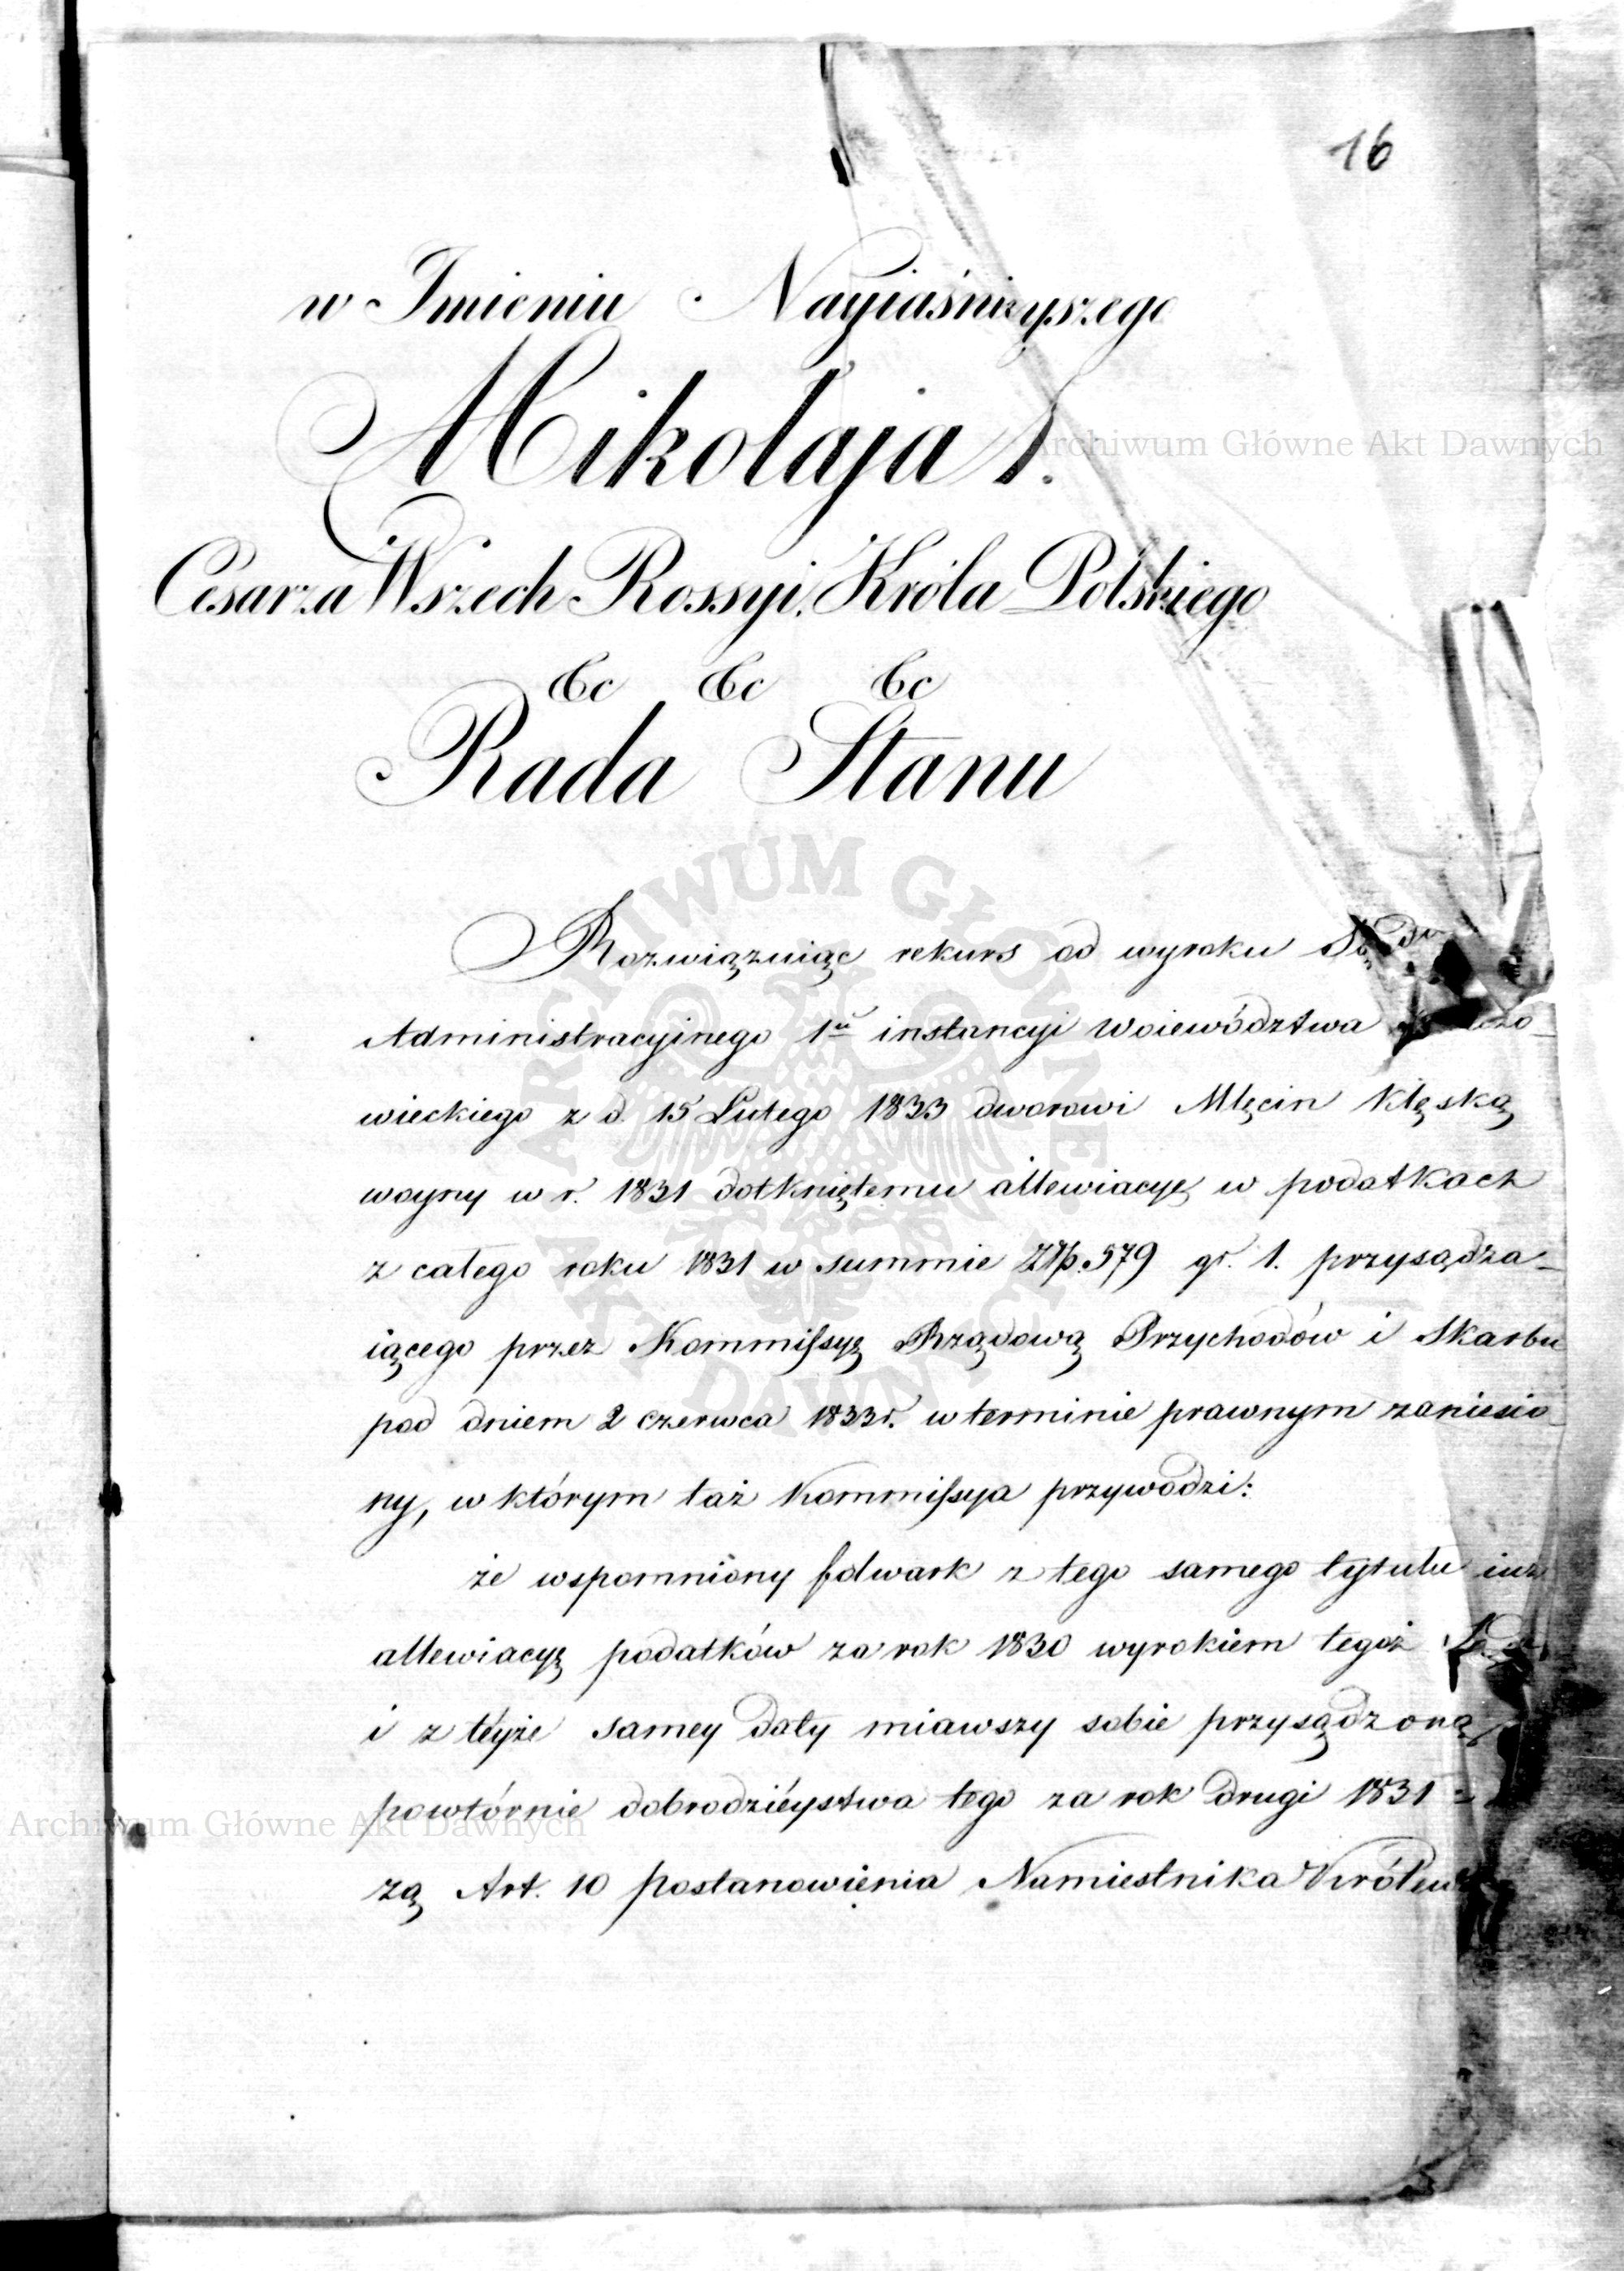 16
w Imieniu Nayiaśnieyszego
Mikołaja I.
Cesarza Wszech Rossyi, Króla Polskiego
&c &c &c
Rada Stanu
Rozwiązuiąc rekurs od wyroku Sądu
Administracyinego 1éj instancyi Woiewództwa
wieckiego z d. 15 Lutego 1833 dworowi Mlęcin klęską
woyny w r. 1831 dotkniętemu allewiacyę w podatkach
z całego roku 1831 w summie Złp. 579 gr. 1. przysądza-
iącego przez Kommissyę Rządową Przychodów i Skarbu
pod dniem 2 czerwca 1833 r. w terminie prawnym zaniesio
ny, w którym taż Kommissya przywodzi:
że wspomniony folwark z tego samego tytułu iuż
allewiacyę podatków za rok 1830 wyrokiem tegoż
i z téyże samey daty miawszy sobie przysądzoną
powtórnie dobrodziéystwa tego za rok drugi 1831
zą Art. 10 postanowienia Namiestnika
Archiwum Główne Akt Dawnych
ARCHIWUM GŁÓWNE AKT DAWNYCH
Archiwum Główne Akt Dawnych